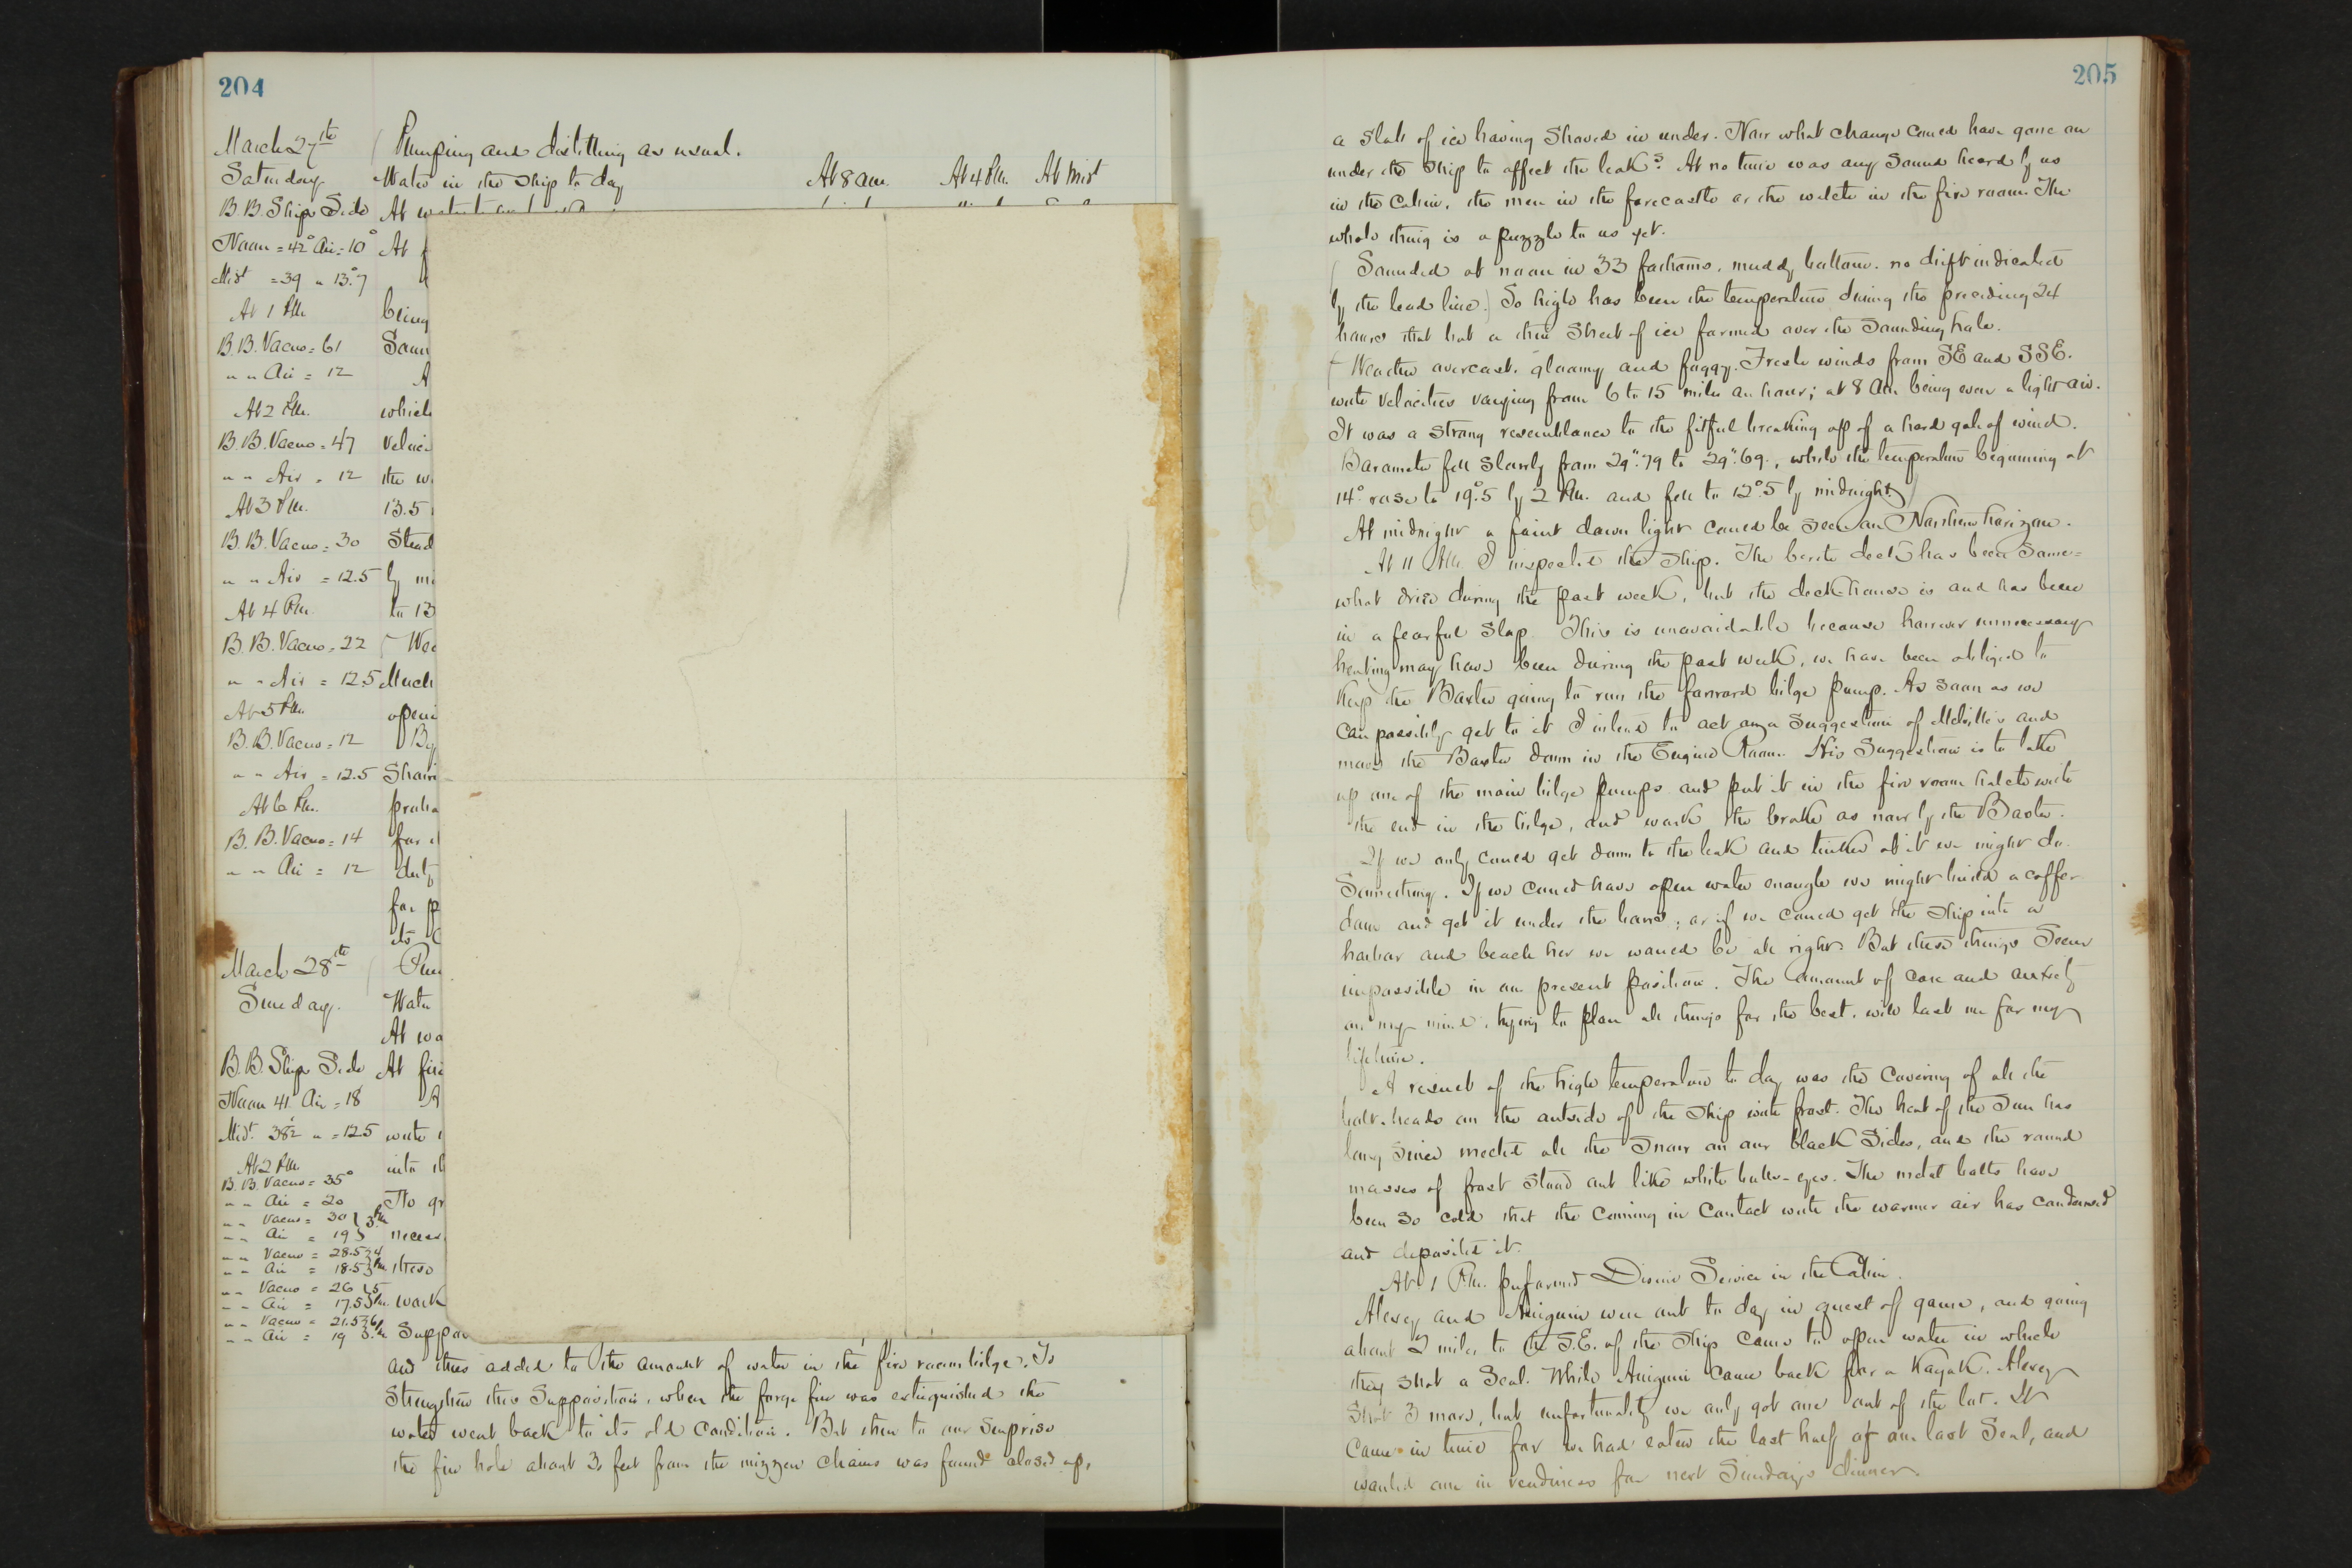 204
March 27th
Saturday
B. B. Ship's Side
Noon = 42° Air = 10°
Midt = 39 " 13.°7
At 1 P.M.
B. B. Vacuo = 61
" " Air = 12
At 2 P.M.
B. B. Vacuo = 47
" " Air = 12
At 3 P.M.
B. B. Vacuo = 30
" " Air = 12.5
At 4 P.M.
B. B. Vacuo = 22
" " Air = 12.5
At 5 P.M.
B. B. Vacuo = 12
" " Air = 12.5
At 6 P.M.
B. B. Vacuo = 14
" " Air = 12
Pumping and distilling as usual.
Water in the ship to day At 8 a.m. At 4 P.M. At Midt
At
At
being
Soun
A
which
veloci
the w
13.5
Stead
by mi
to 13
Wea
Much
openi
By
Shari
proba
for
duty
for p
its
March 28th
Sunday.
B. B. Ship's Side
Noon 41 Air = 18
Midt. 38½ " = 12.5
At 2 P.M.
B. B. Vacuo = 35°
" " Air = 20
" " Vacuo = 30 } 3 P.M.
" " Air = 19
" " Vacuo = 28.5 } 4 P.M.
" " Air = 18.5
" " Vacuo = 26 } 5 P.M.
" " Air = 17.5
" " Vacuo = 21.5 } 6 P.M.
" " Air = 19
Pum
Water
At wa
At fire
A
with
into th
To gr
necess
these
work
Suppos
and thus added to the amount of water in the fire room bilge. To
strengthen this supposition, when the forge fire was extinguished the
water went back to its old condition. But then to our surprise
the fire hole about 3 feet from the mizzen chains was found closed up,
205
a slab of ice having shoved in under. Now what change could have gone on
under the ship to affect the leaks? At no time was any sound heard by us
in the cabin, the men in the forecastle or the watch in the fire room. The
whole thing is a puzzle to us yet.
(Sounded at noon in 33 fathoms, muddy bottom. no drift indicated
by the lead line.) So high has been the temperature during the preceding 24
hours that but a thin sheet of ice formed over the sounding hole.
(Weather overcast, gloomy and foggy. Fresh winds from SE and SSE.
with velocities varying from 6 to 15 miles an hour; at 8 A.M. being even a light air.
It was a strong resemblance to the fitful breaking up of a hard gale of wind.
Barometer fell slowly from 29".79 to 29".69., while the temperature beginning at
14° rose to 19.°5 by 2 P.M. and fell to 12.°5 by midnight.)
At midnight a faint dawn light could be seen on Northern horizon.
At 11 A.M. I inspected the ship. The berth deck has been some=
what dried during the past week, but the deck-house is and has been
in a fearful slop. This is unavoidable because however unnecessary
heating may have been during the past week, we have been obliged to
keep the Baxter going to run the forward bilge pump. As soon as we
can possibly get to it I intend to act on a suggestion of Melville's and
move the Baxter down in the Engine Room. His suggestion is to take
up one of the main bilge pumps and put it in the fire room hatch with
the end in the bilge, and work the brake as now by the Baxter.
If we only could get down to the leak and tinker at it we might do
something. If we could have open water enough we might build a coffer
dam and get it under the bows; or if we could get the ship into a
harbor and beach her we would be all right. But these things seem
impossible in our present position. The amount of care and anxiety
on my mind, trying to plan all things for the best, will last me for my
lifetime.
A result of the high temperature to day was the covering of all the
bolt-heads on the outside of the ship with frost. The heat of the sun has
long since melted all the snow on our black sides, and the round
masses of frost stand out like white bulls-eyes. The metal bolts have
been so cold that the coming in contact with the warmer air has condensed
and deposited it.
At 1 P.M. performed Divine Service in the Cabin.
Alexey and Aniguin were out to day in quest of game, and going
about 2 miles to the S.E. of the ship came to open water in which
they shot a Seal. While Aniguin came back for a Kayak. Alexey
shot 3 more, but unfortunately we only got one out of the lot. It
came in time for we had eaten the last half of our last Seal, and
wanted one in readiness for next Sunday's dinner.